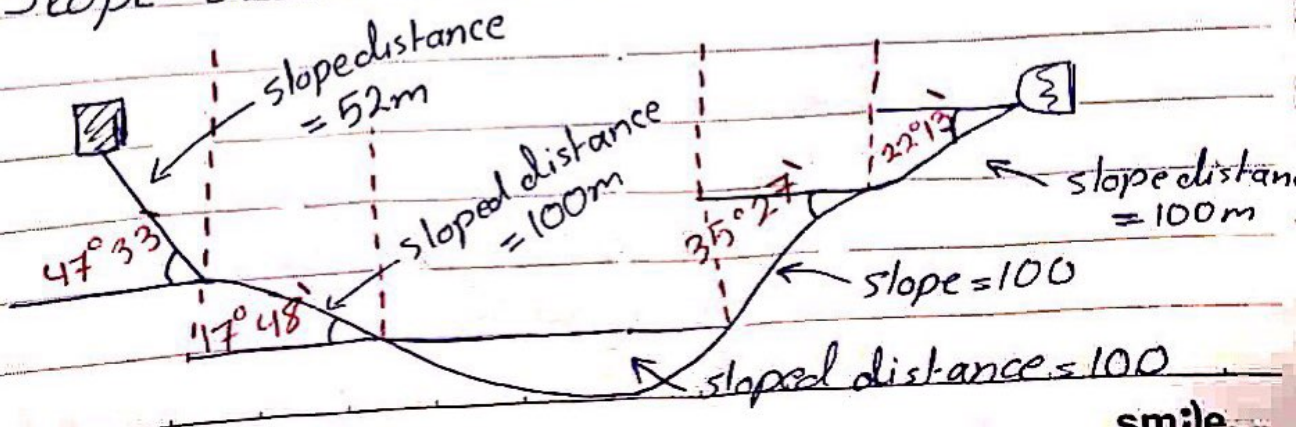 Slope
slope distance
= 52m
sloped distance
= 100m
47°33
17°48`
35°27`
22°13`
slope distan
= 100m
slope = 100
sloped distance = 100
smile